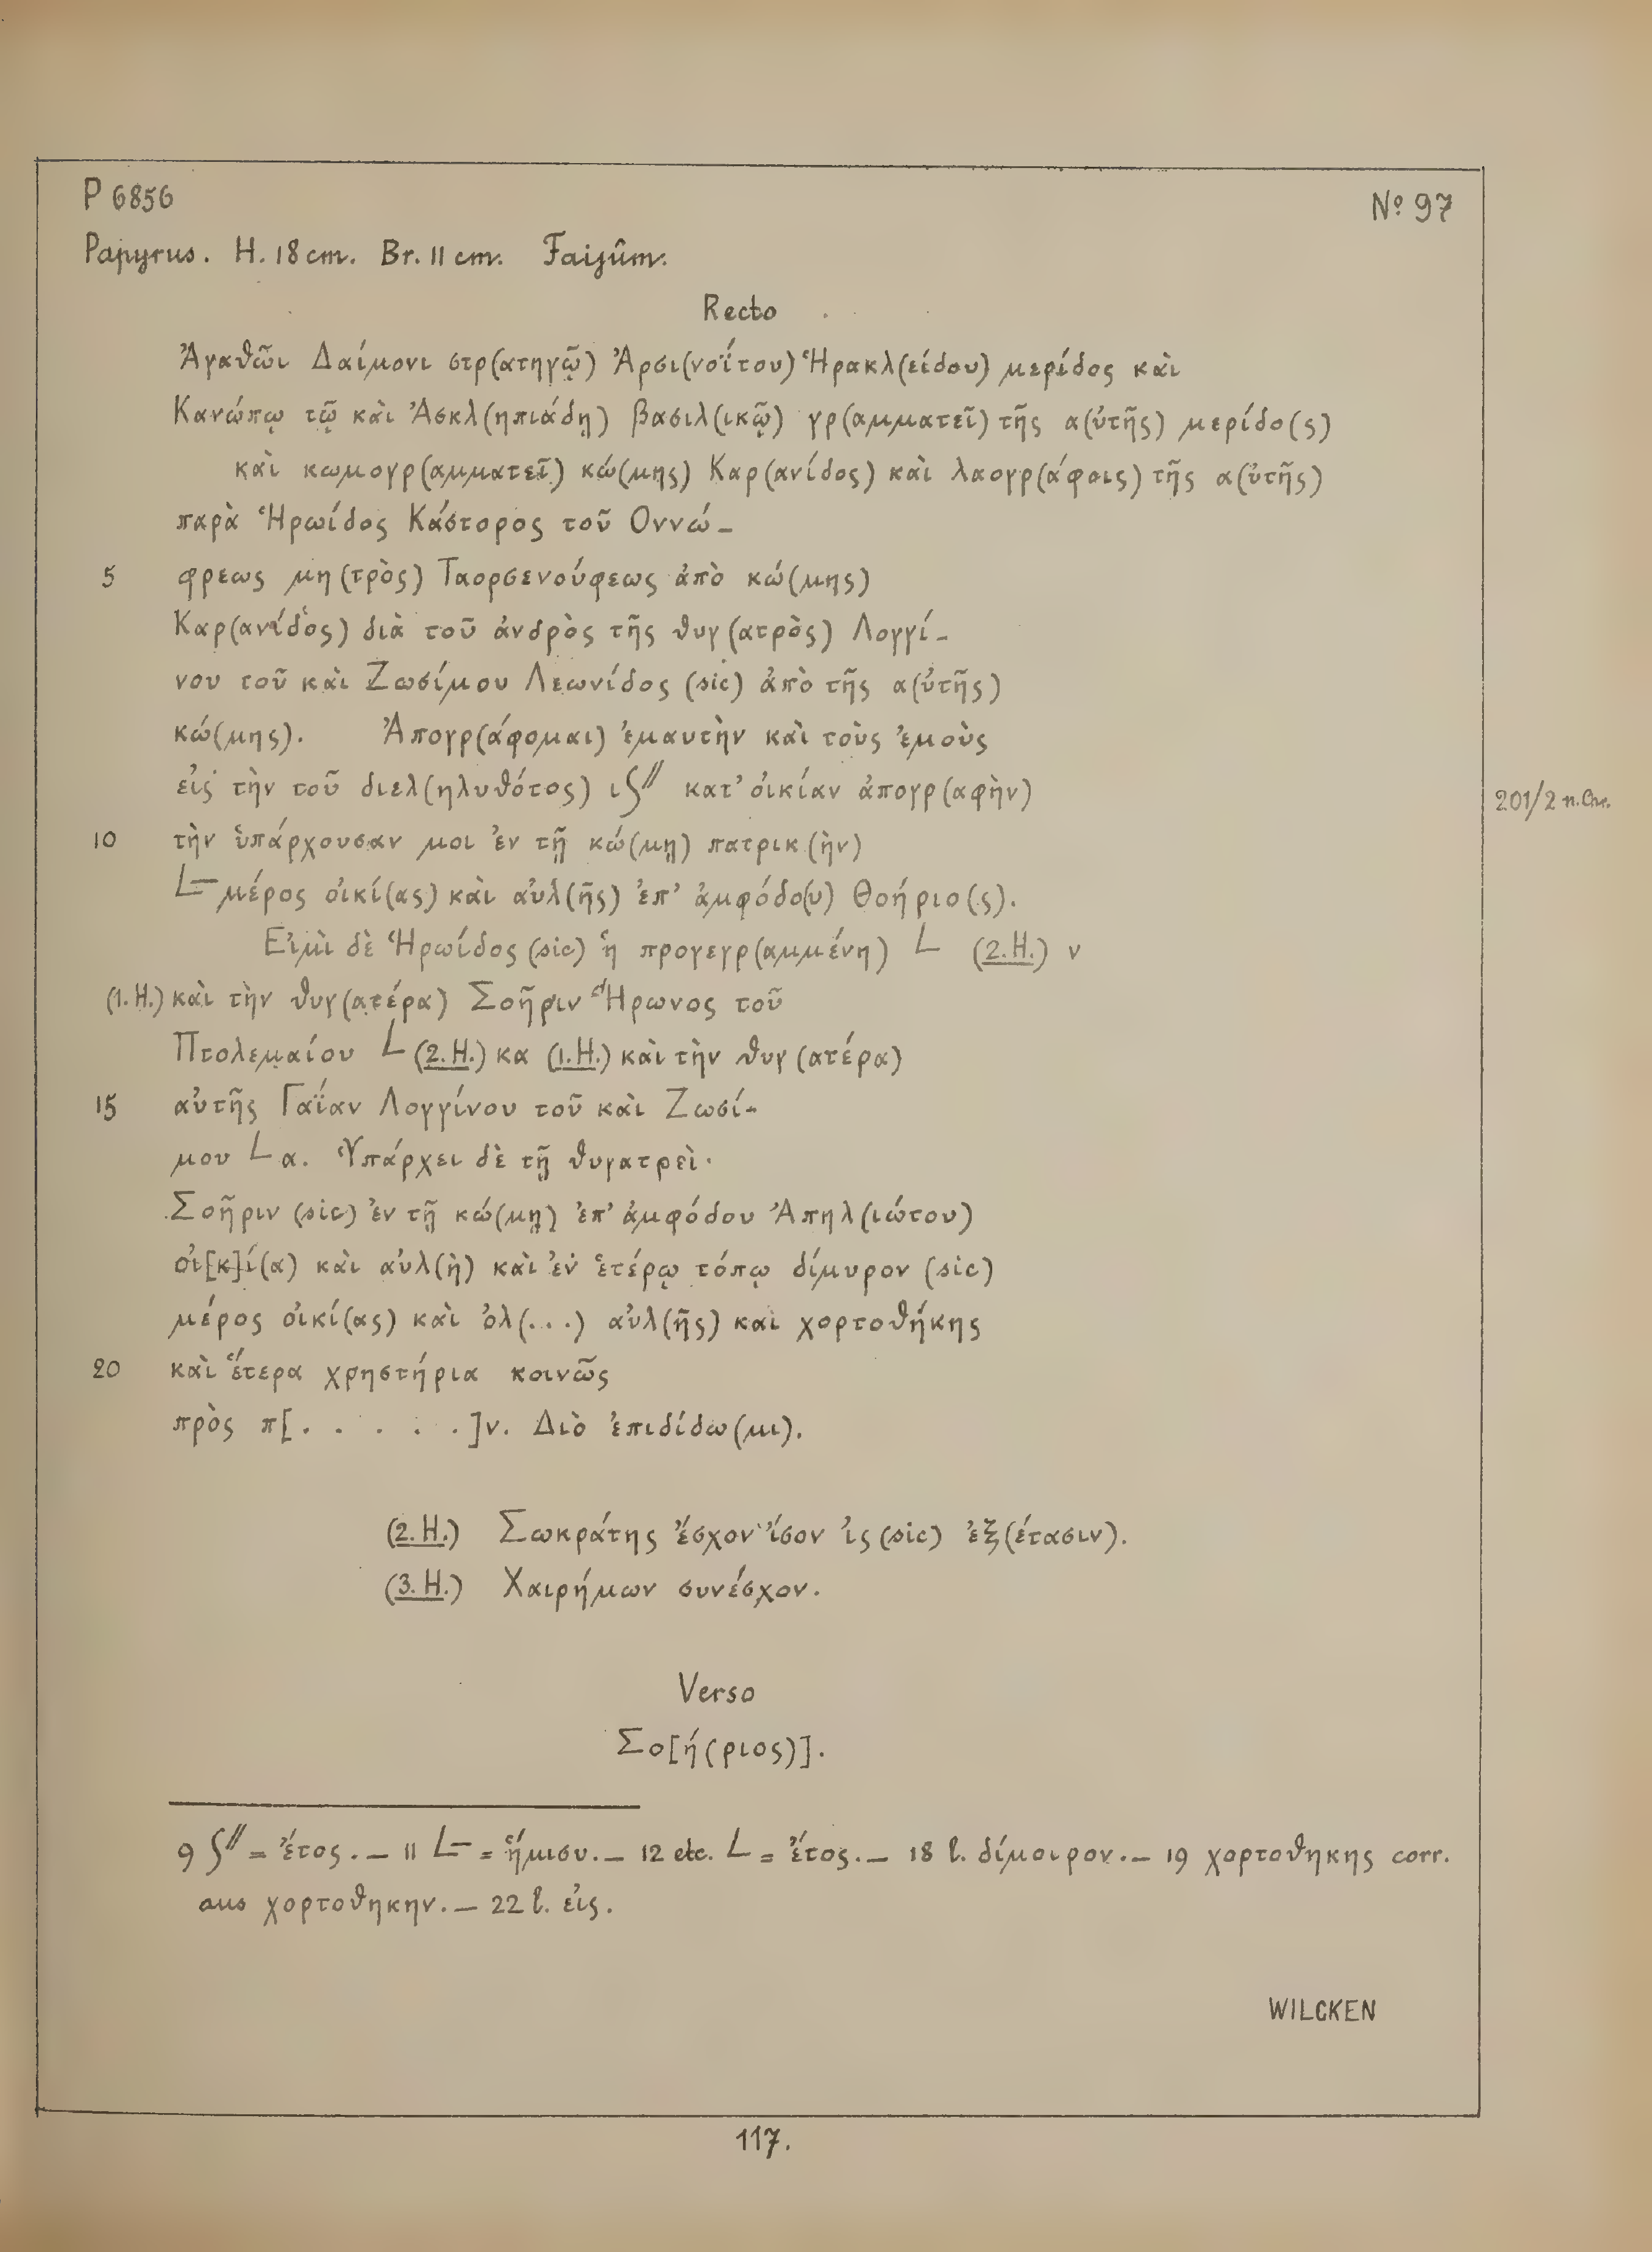 P 6856 Nº 97
Papyrus. H. 18 cm. Br. 11 cm. Faijûm.
Recto
Ἀγαθῶι Δαίμονι στρ(ατηγῷ) Ἀρσι(νοΐτου) Ἡρακλ(είδου) μερίδος καὶ
Κανώπῳ τῷ καὶ Ἀσκλ(ηπιάδῃ) βασιλ(ικῷ) γρ(αμματεῖ) τῆς α(ὐτῆς) μερίδο(ς)
καὶ κωμογρ(αμματεῖ) κώ(μης) Καρ(ανίδος) καὶ λαογρ(άφοις) τῆς α(ὐτῆς)
παρὰ Ἡρωίδος Κάστορος τοῦ Οννώ-
5 φρεως μη(τρὸς) Ταορσενούφεως ἀπὸ κώ(μης)
Καρ(ανίδος) διὰ τοῦ ἀνδρὸς τῆς θυγ(ατρὸς) Λογγί-
νου τοῦ καὶ Ζωσίμου Λεωνίδος (sic) ἀπὸ τῆς α(ὐτῆς)
κώ(μης). Ἀπογρ(άφομαι) ἐμαυτὴν καὶ τοὺς ἐμοὺς
εἰς τὴν τοῦ διελ(ηλυθότος) ιʃ// κατ' οἰκίαν ἀπογρ(αφὴν) 201/2 n. Chr.
10 τὴν ὑπάρχουσαν μοι ἐν τῇ κώ(μῃ) πατρικ(ὴν)
L– μέρος οἰκί(ας) καὶ αὐλ(ῆς) ἐπ' ἀμφόδο(υ) Θοήριο(ς).
Εἰμὶ δὲ Ἡρωίδος (sic) ἡ προγεγρ(αμμένη) L (2. H.) ν
(1. H.) καὶ τὴν θυγ(ατέρα) Σοῆριν Ἥρωνος τοῦ
Πτολεμαίου L (2. H.) κα (1. H.) καὶ τὴν θυγ(ατέρα)
15 αὐτῆς Γαΐαν Λογγίνου τοῦ καὶ Ζωσί-
μου L α. Ὑπάρχει δὲ τῇ θυγατρεὶ
Σοῆριν (sic) ἐν τῇ κώ(μῃ) ἐπ' ἀμφόδου Ἀπηλ(ιώτου)
οἰ[κ]ί(α) καὶ αὐλ(ὴ) καὶ ἐν ἑτέρῳ τόπῳ δίμυρον (sic)
μέρος οἰκί(ας) καὶ ὁλ(...) αὐλ(ῆς) καὶ χορτοθήκης
20 καὶ ἕτερα χρηστήρια κοινῶς
πρὸς π[. . . . .]ν. Διὸ ἐπιδίδω(μι).
(2. H.) Σωκράτης ἔσχον ἴσον ἰς (sic) ἐξ(έτασιν).
(3. H.) Χαιρήμων συνέσχον.
Verso
Σο[ή(ριος)].
9 ʃ// = ἔτος. — 11 L– = ἥμισυ. — 12 etc. L = ἔτος. — 18 l. δίμοιρον. — 19 χορτοθηκης corr.
aus χορτοθηκην. — 22 l. εἰς.
WILCKEN
117.